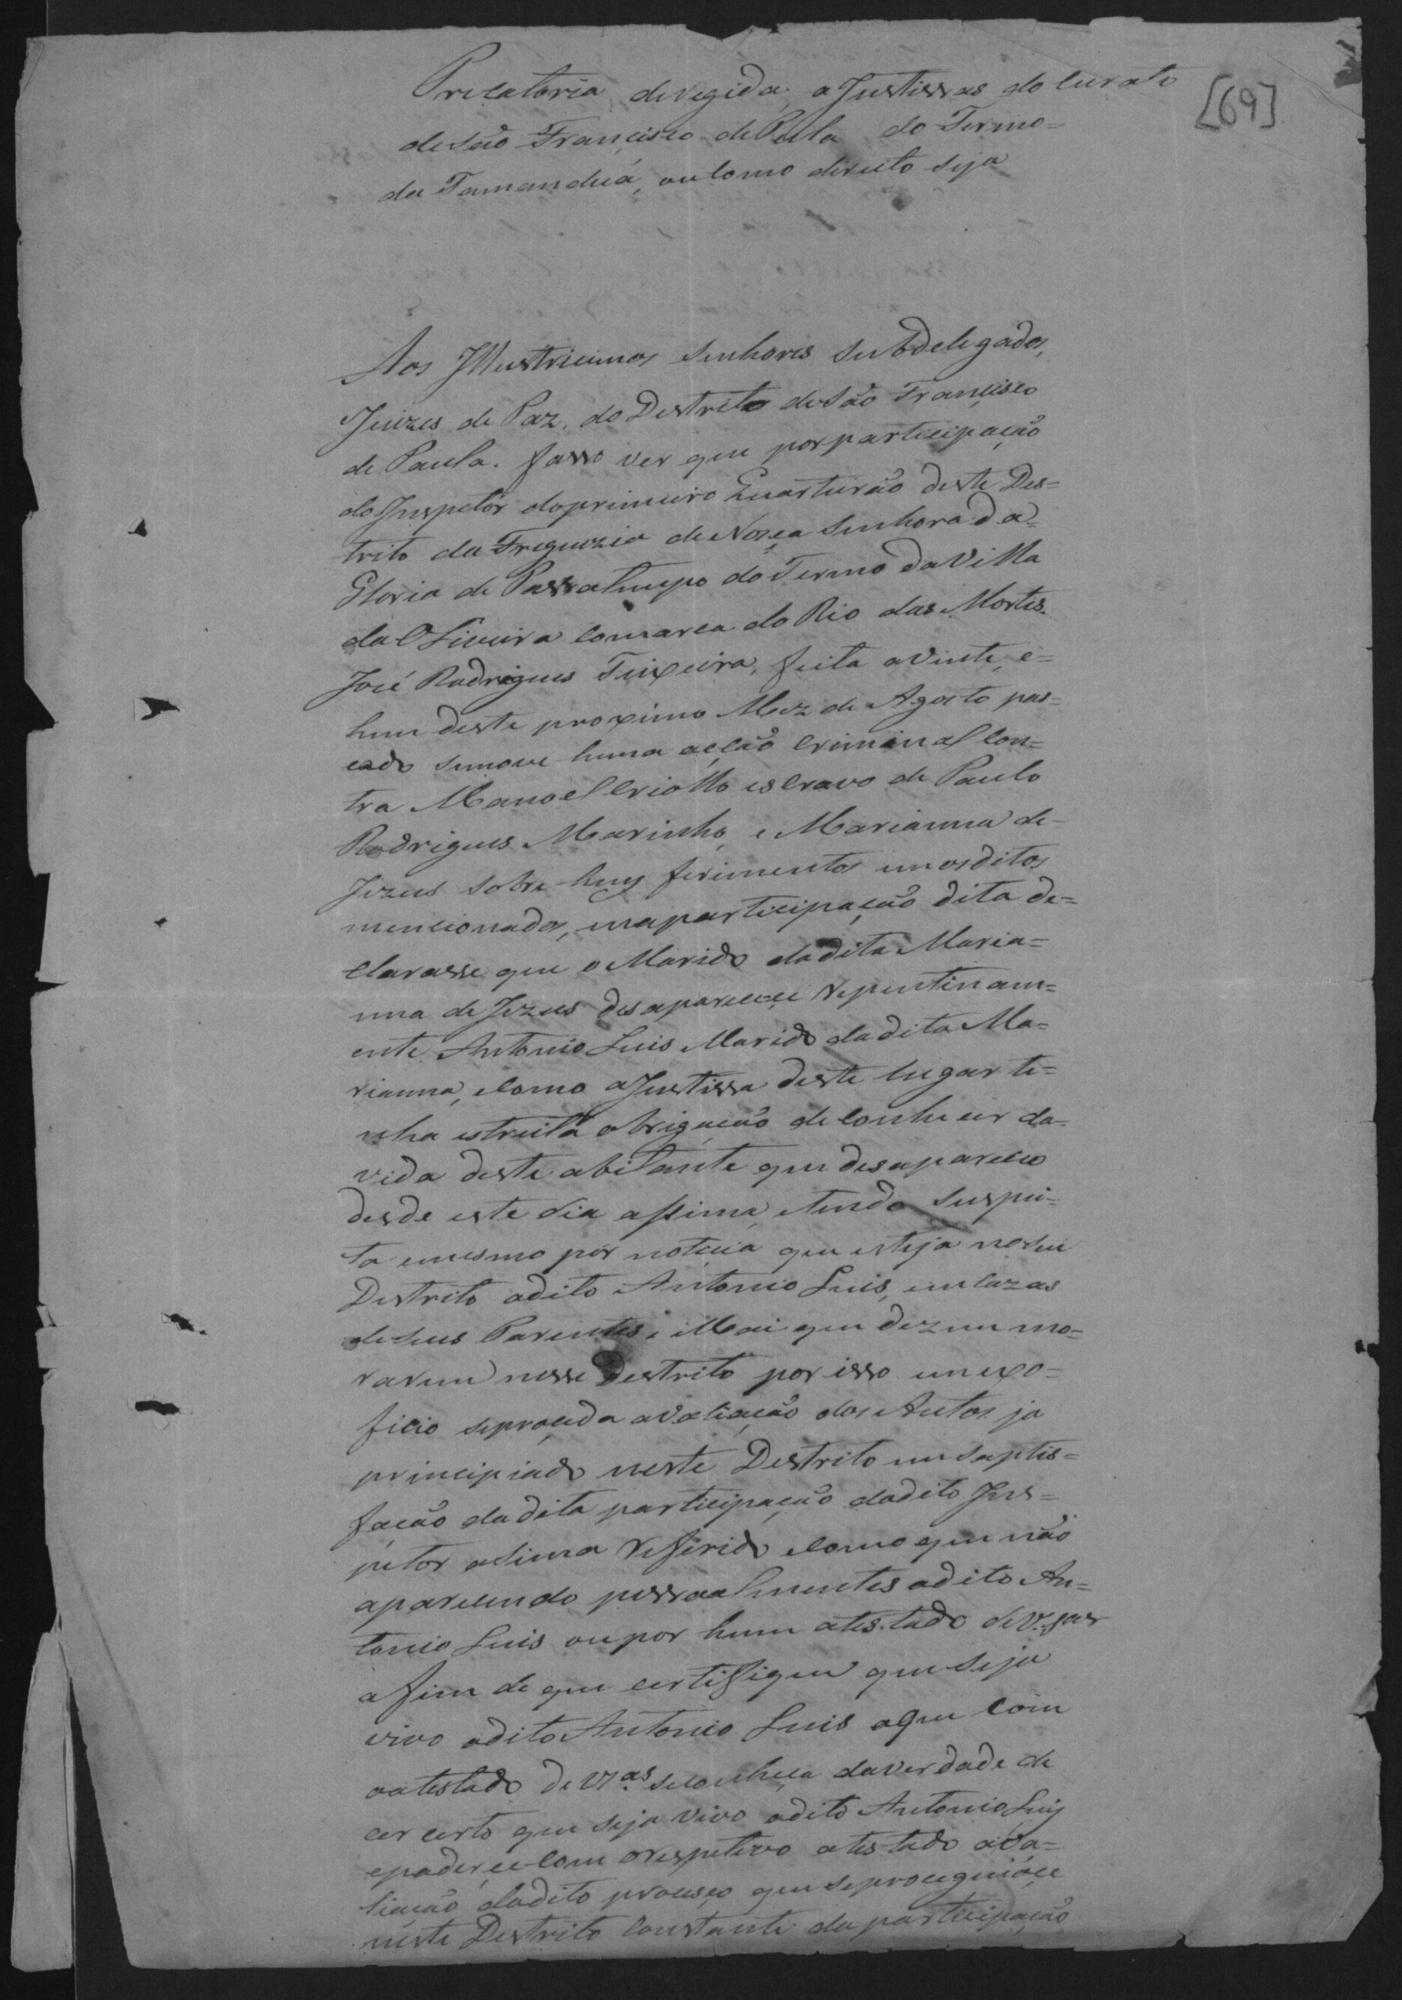 Precatoria deregida, a Justissas do Curato
[69]
de São Francisco de Paula do Termo=
da Tamanduá, ou como direito seja
Aos Illustricimos Senhores Subdelegados,
Juizes de Paz, do Destrito de São Francisco
de Paula. fasso ver que por participação
do Inspetor do primeiro Quarturão deste Des=
trito da Freguezia de Noça Senhora da
Gloria de Passa tempo do Termo da Villa
da Oliveira Comarca do Rio das Mortes.
José Rodrigues Teixeira, feita a Vinte, e=
hum deste proximo Mez de Agosto pas=
cado semove huma acção Criminal Con=
tra Manoel Criollo escravo de Paulo
Rodrigues Marinho, e Marianna de=
Jezus sobre huns ferimentos em os ditos
mencionados, e na participação dita de=
clarasse que o Marido da dita Maria=
nna de Jezus desaparecce repentinam=
ente Antonio Luis Marido da dita Ma=
rianna, e Como a Justissa deste lugar te=
nha estreita obrigação de Conhecer da
vida deste abitante que desapareceo
desde este dia assima, e tendo Suspei=
ta e mesmo por noticia que esteja no Seu
Destrito o dito Antonio Luis, em Cazas
de Seus Parentes, e Mai que dizem mo=
rarem nesse Destrito por isso em exo=
ficio se proceda a valiação dos Autos ja
principiado neste Destrito em Saptis=
fação da dita participação do dito Ins=
petor asima referido e Como que não
aparecendo pessoalmentes o dito An=
tonio Luis ou por hum atestado de V.ças
afim de que certifiquem que Seja
vivo o dito Antonio Luis aque Com
o atestado de V.as se conheça da verdade de
cer certo que Seja vivo o dito Antonio Luis
e poderçe Com o respetivo atestado a va=
liação do dito proceço que se proceguiose
neste Destrito Constante da participação